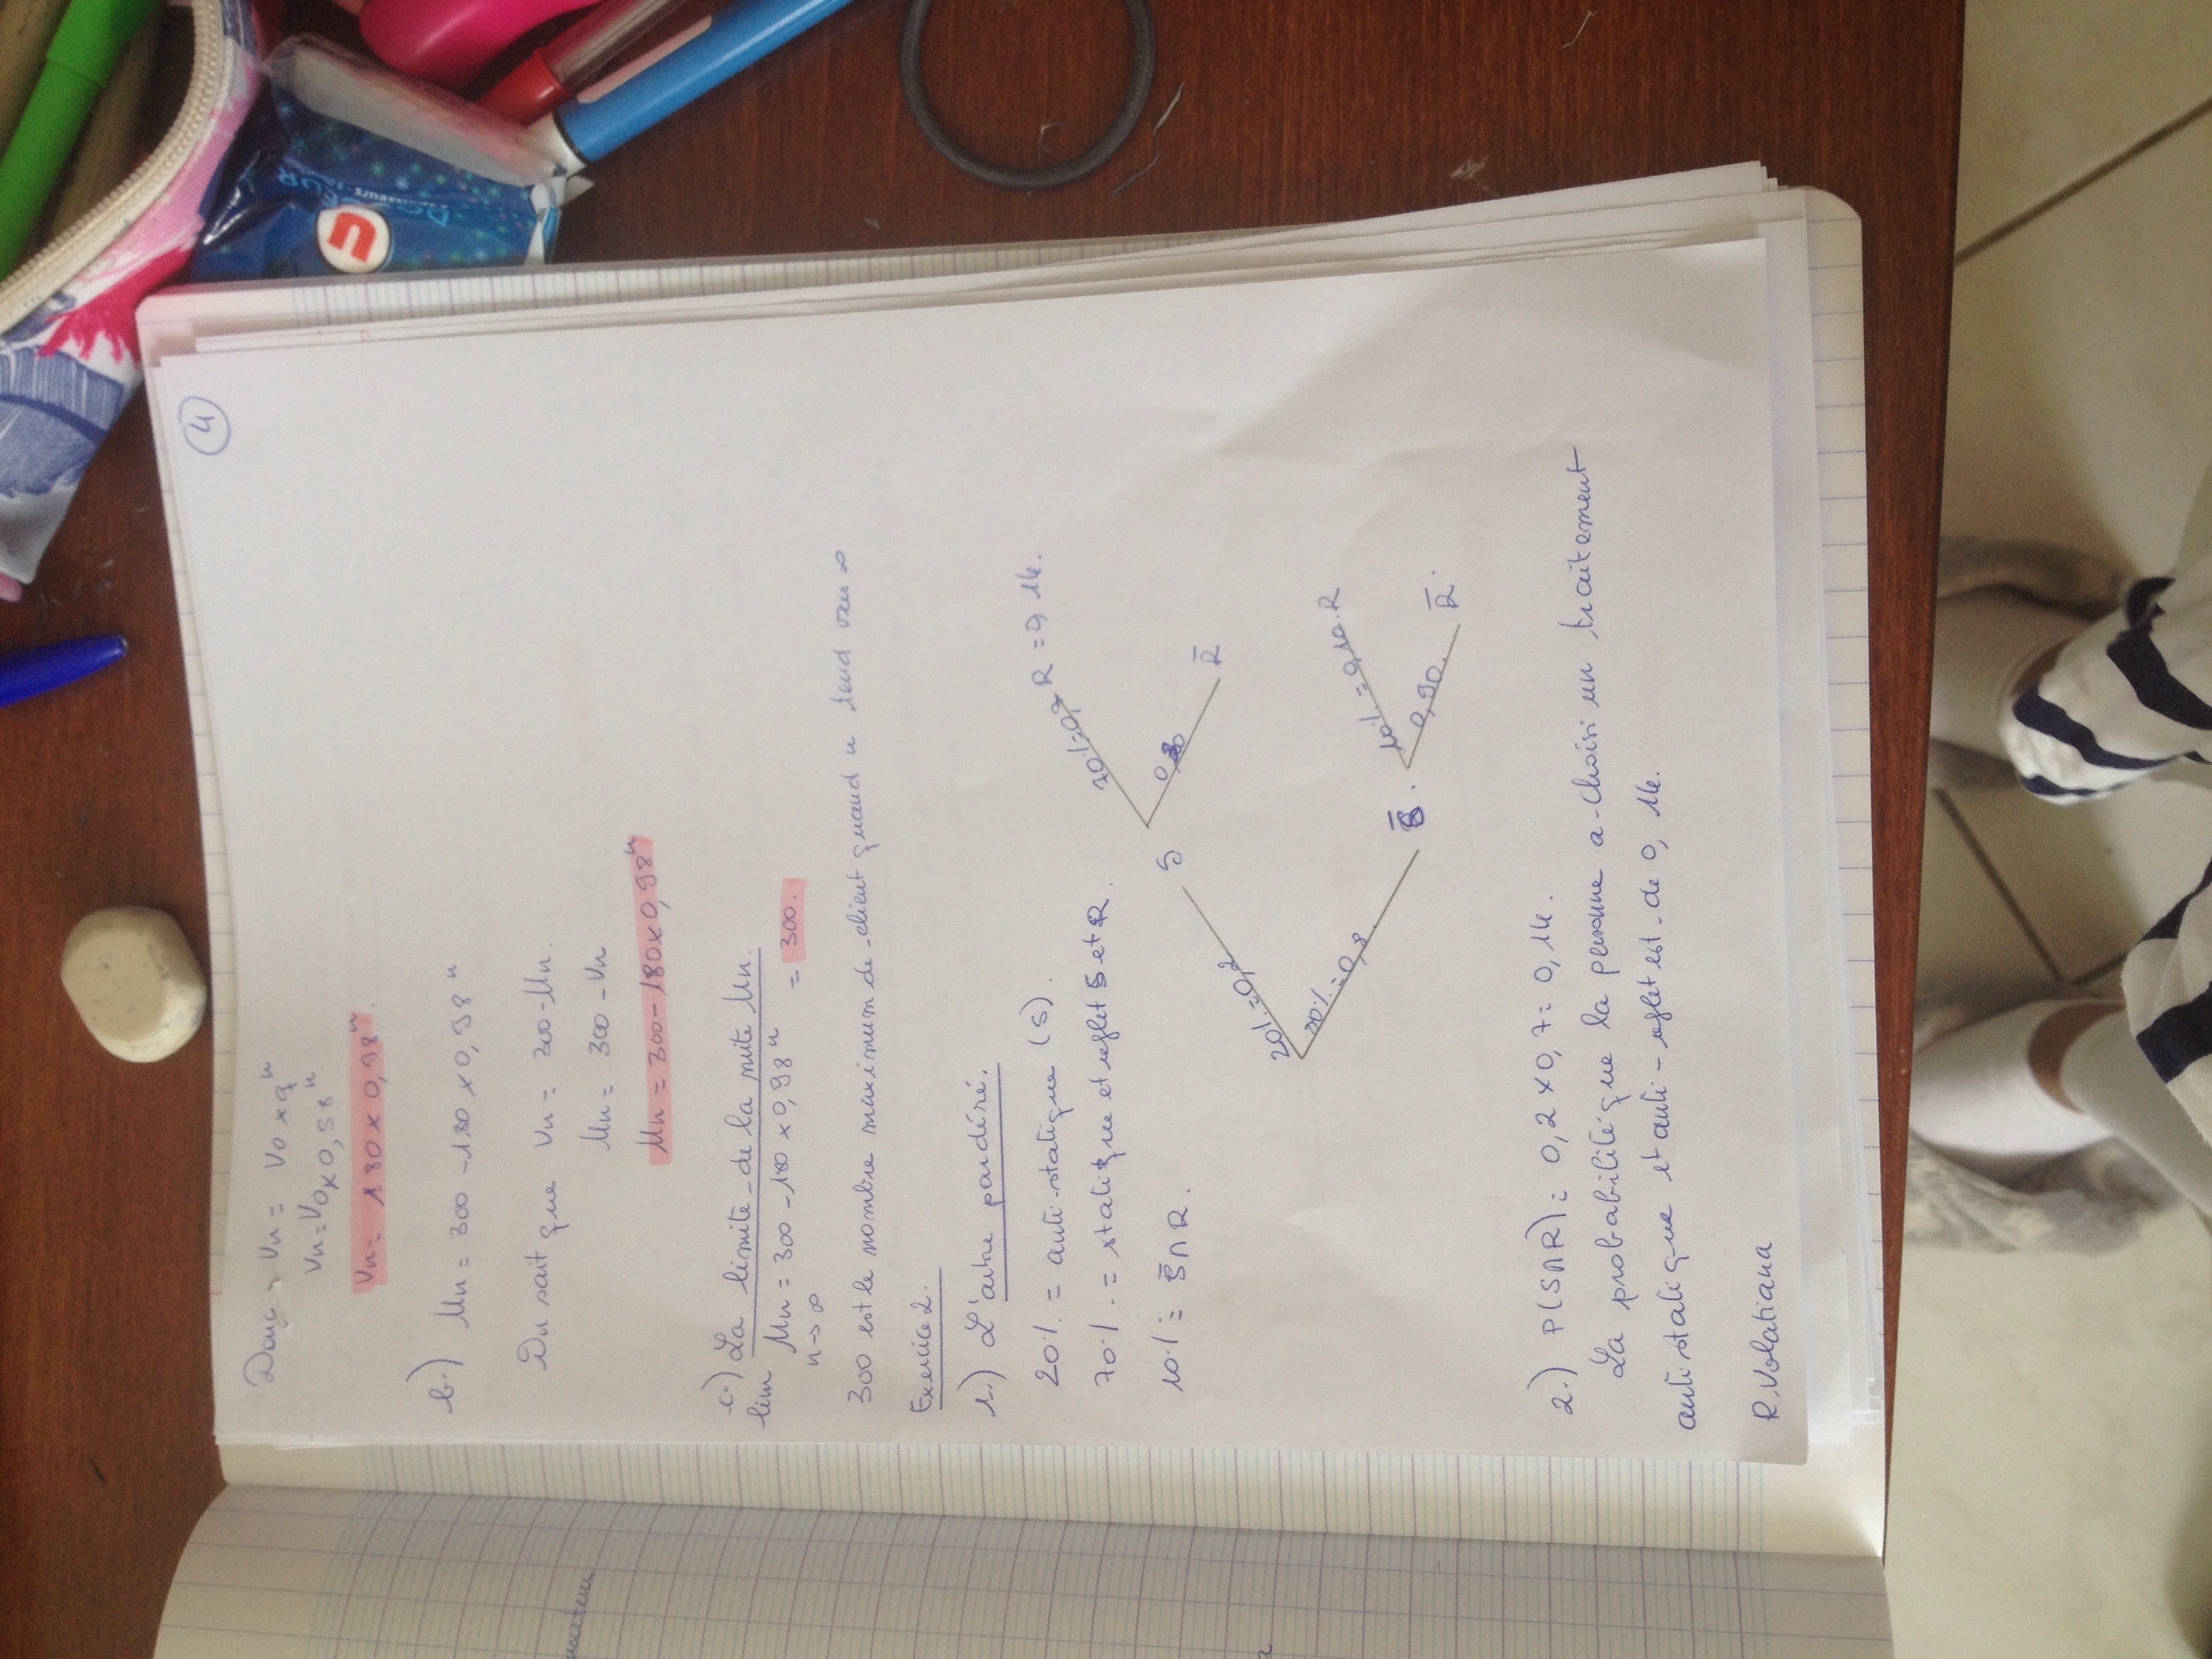 4
Donc : Vn = V0 × q^n
Vn = V0 × 0,98^n
Vn = 180 × 0,98^n.
b.) Un = 300 - 180 × 0,98^n
On sait que Vn = 300 - Un.
Un = 300 - Vn
Un = 300 - 180 × 0,98^n
c.) La limite de la suite Un.
lim Un = 300 - 180 × 0,98^n = 300.
n → ∞
300 est le nombre maximum de client quand n tend vers ∞
Exercice 2.
1.) L'arbre pondéré.
20% = anti-statique (S).
70% = statique et reflet S et R.
10% = S̄ ∩ R.
70% = 0,7 R = 0,14.
0,30 R̄
S
20% = 0,2
80% = 0,8
S̄.
10% = 0,10. R
0,90. R̄.
2.) P(S∩R) = 0,2 × 0,7 = 0,14.
La probabilité que la personne a choisi un traitement
antistatique et anti-reflet est de 0,14.
R.Volatiana
U
DOUCEUR